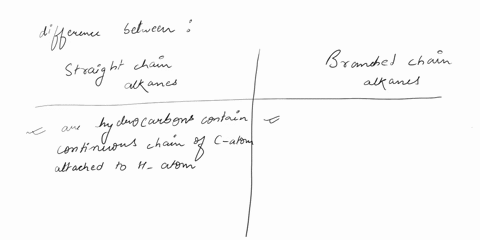 difference between :
Straight chain
alkanes
Branched chain
alkanes
are hydrocarbons contain
continuous chain of C-atom
attached to H-atom